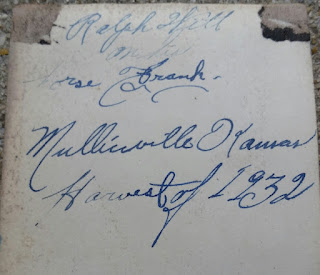 Ralph Hill
on the
horse Frank.
Mullinville Kansas
Harvest of 1932